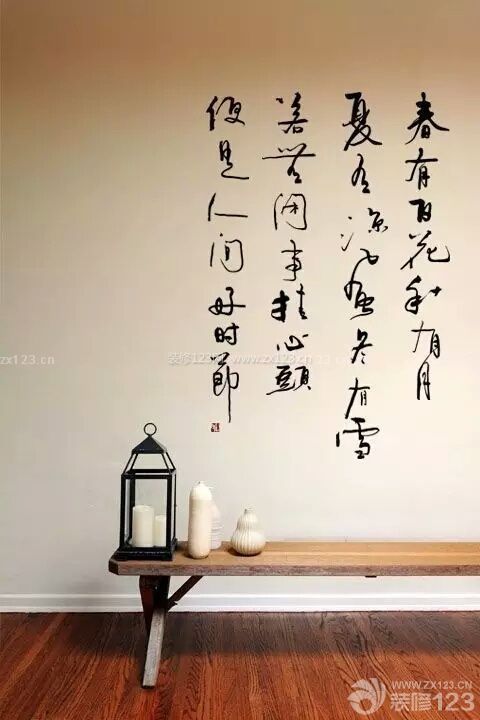 春有百花秋有月
夏有涼風冬有雪
若無闲事挂心頭
便是人间好时節
zx123.cn
www.zx123.cn
WWW.ZX123.CN
装修123